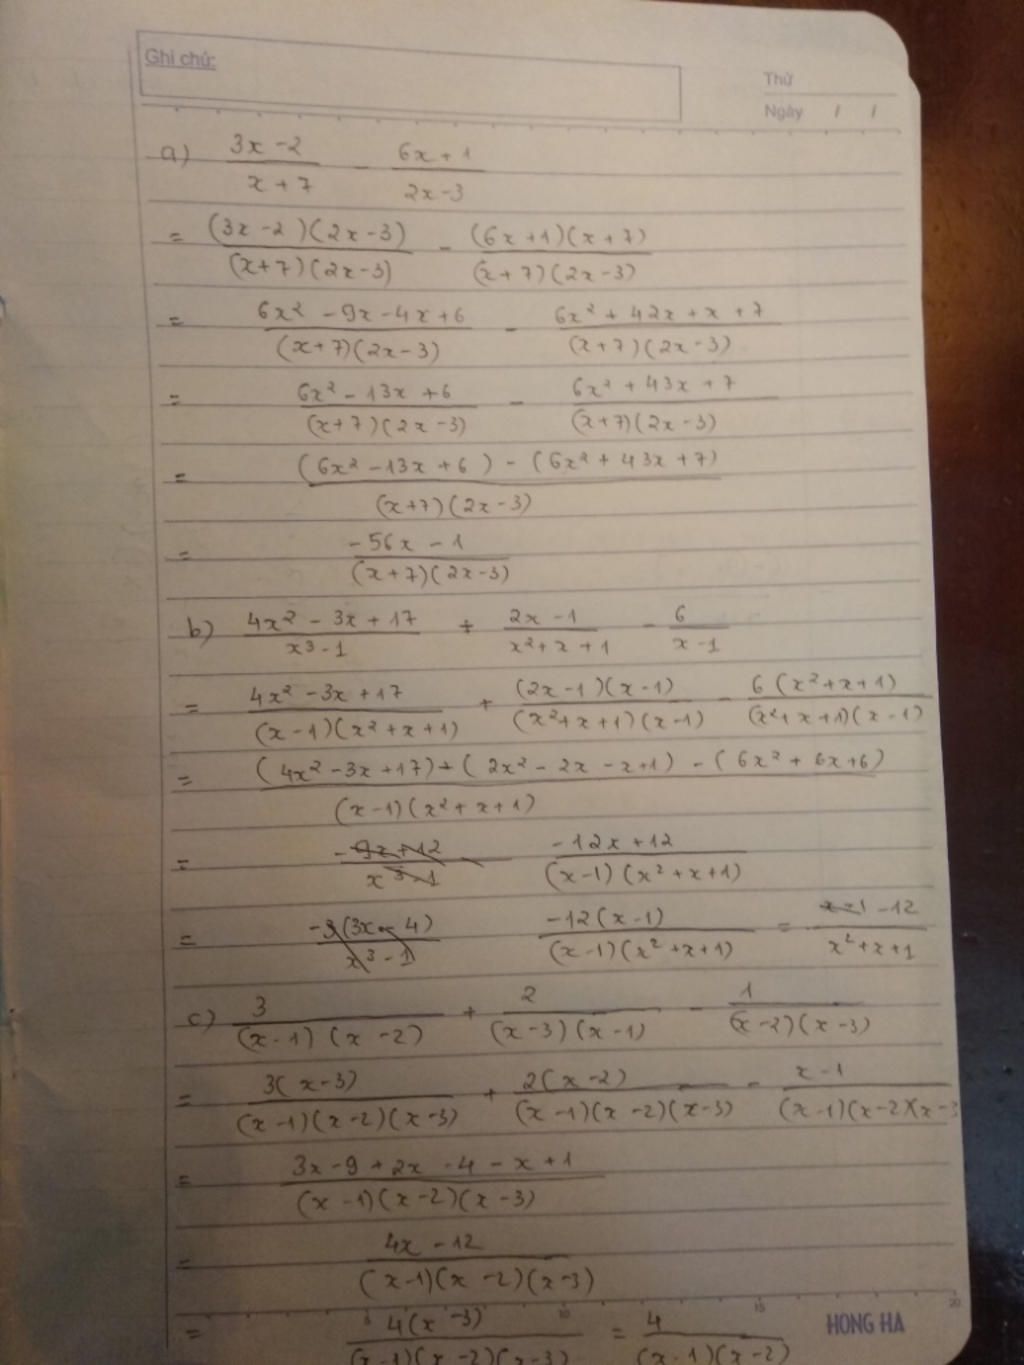 Ghi chú:
Thứ
Ngày / /
a) (3x - 2)/(x + 7) - (6x + 1)/(2x - 3)
= ((3x - 2)(2x - 3))/((x+7)(2x-3)) - ((6x+1)(x+7))/((x+7)(2x-3))
= (6x² - 9x - 4x + 6)/((x+7)(2x-3)) - (6x² + 42x + x + 7)/((x+7)(2x-3))
= (6x² - 13x + 6)/((x+7)(2x-3)) - (6x² + 43x + 7)/((x+7)(2x-3))
= ((6x² - 13x + 6) - (6x² + 43x + 7))/((x+7)(2x-3))
= (-56x - 1)/((x+7)(2x-3))
b) (4x² - 3x + 17)/(x³ - 1) + (2x - 1)/(x² + x + 1) - 6/(x - 1)
= (4x² - 3x + 17)/((x-1)(x²+x+1)) + ((2x-1)(x-1))/((x²+x+1)(x-1)) - (6(x²+x+1))/((x²+x+1)(x-1))
= ((4x² - 3x + 17) + (2x² - 2x - x + 1) - (6x² + 6x + 6))/((x-1)(x²+x+1))
= (-9x + 12)/(x³ - 1) (-12x + 12)/((x-1)(x²+x+1))
= (-3(3x - 4))/(x³ - 1) (-12(x-1))/((x-1)(x²+x+1)) = (x-1 -12)/(x²+x+1)
c) 3/((x-1)(x-2)) + 2/((x-3)(x-1)) - 1/((x-2)(x-3))
= (3(x-3))/((x-1)(x-2)(x-3)) + (2(x-2))/((x-1)(x-2)(x-3)) - (x-1)/((x-1)(x-2)(x-3
= (3x - 9 + 2x - 4 - x + 1)/((x-1)(x-2)(x-3))
= (4x - 12)/((x-1)(x-2)(x-3))
= (4(x-3))/((x-1)(x-2)(x-3)) = 4/((x-1)(x-2))
10 15 20
HONG HA